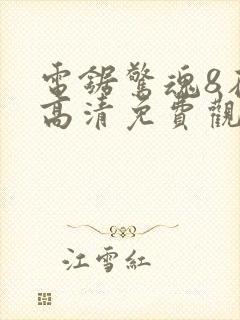 電鋸驚魂8
高清免費觀
江雪紅